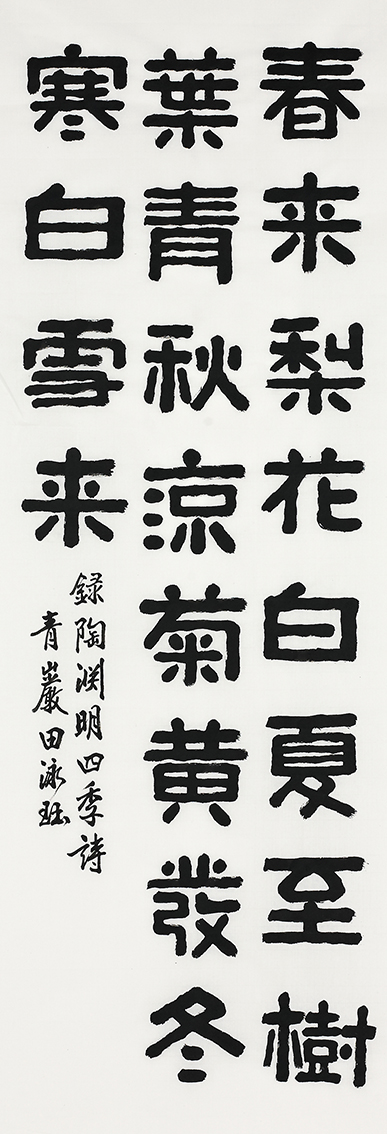 春来梨花白夏至樹
葉青秋涼菊黄發冬
寒白雪来
録陶渊明四季詩
青巖田泳鈺